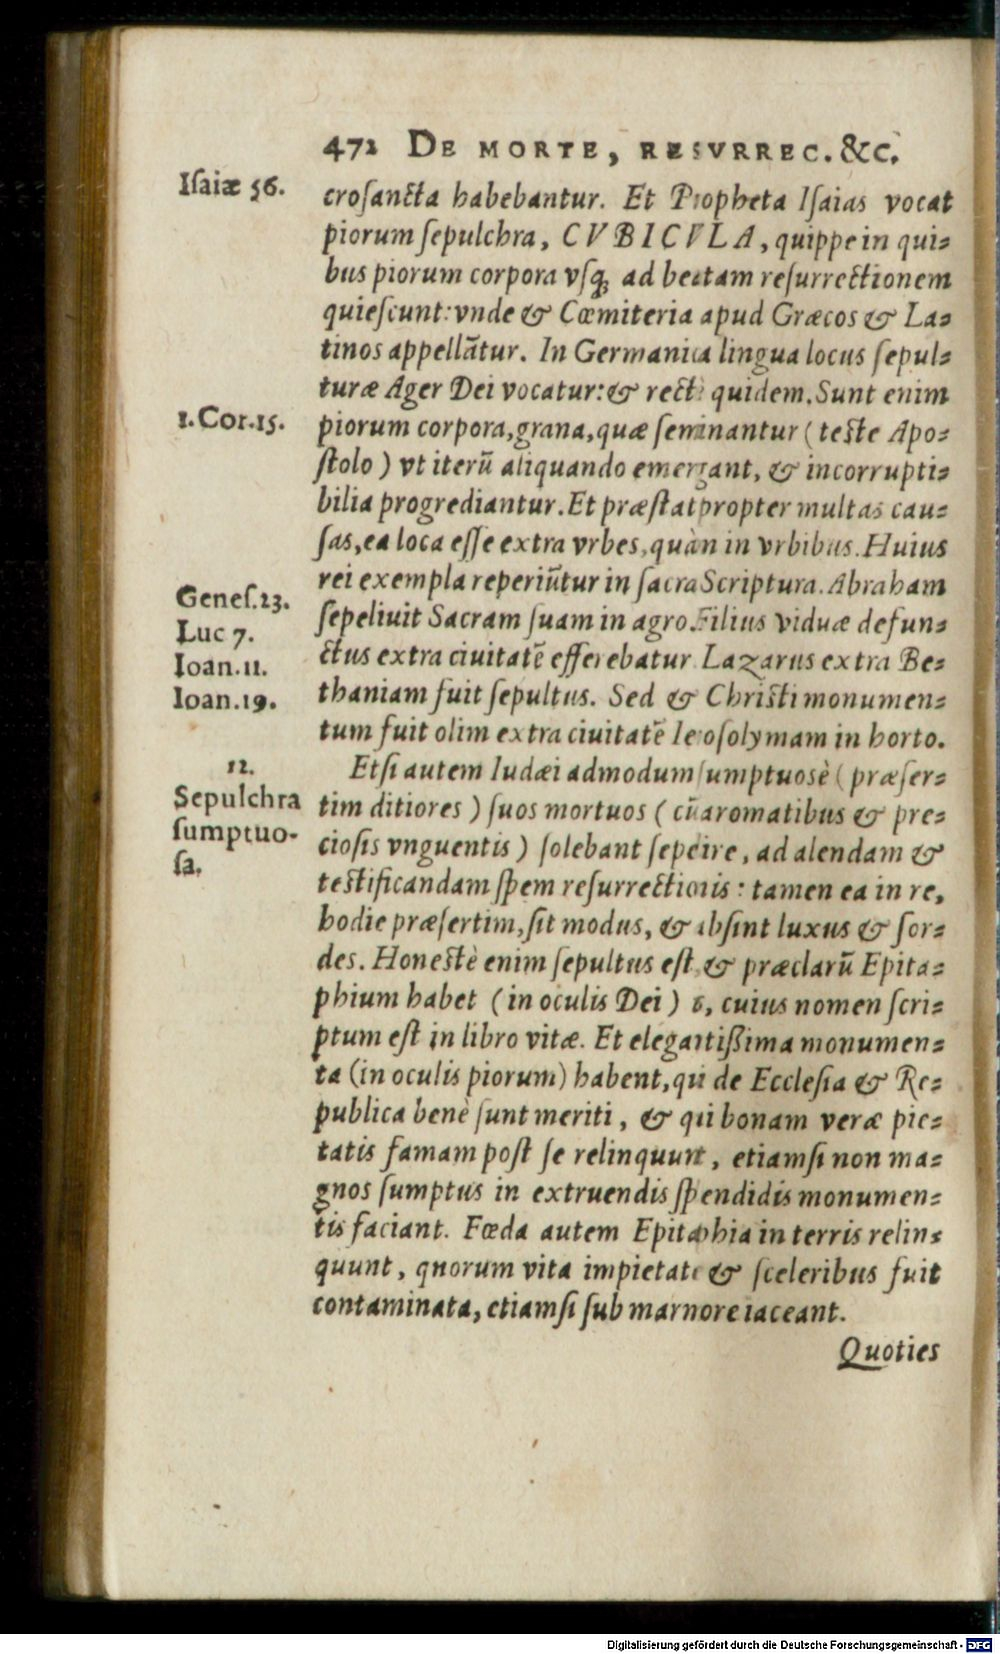 472 DE MORTE, RESVRREC. &c.
Iſaiæ 56.
croſancta habebantur. Et Propheta Iſaias vocat
piorum ſepulchra, CVBICVLA, quippe in qui=
bus piorum corpora vſq; ad beatam reſurrectionem
quieſcunt: vnde & Cœmiteria apud Græcos & La=
tinos appellātur. In Germanica lingua locus ſepul=
turæ Ager Dei vocatur: & rectè quidem. Sunt enim
1. Cor. 15.
piorum corpora, grana, quæ ſeminantur (teſte Apo=
ſtolo) vt iterū aliquando emergant, & incorrupti=
bilia progrediantur. Et præſtat propter multas cau=
ſas, ea loca eſſe extra vrbes, quàm in vrbibus. Huius
rei exempla reperiūtur in ſacra Scriptura. Abraham
Geneſ. 23.
ſepeliuit Sacram ſuam in agro. Filius viduæ defun=
Luc 7.
ctus extra ciuitatē efferebatur. Lazarus extra Be=
Ioan. 11.
thaniam fuit ſepultus. Sed & Chriſti monumen=
Ioan. 19.
tum fuit olim extra ciuitatē Ieroſolymam in horto.
12.
Sepulchra
ſumptuo-
ſa.
Etſi autem Iudæi admodum ſumptuosè (præſer=
tim ditiores) ſuos mortuos (cū aromatibus & pre=
cioſis vnguentis) ſolebant ſepelire, ad alendam &
teſtificandam ſpem reſurrectionis: tamen ea in re,
hodie præſertim, ſit modus, & abſint luxus & ſor=
des. Honeſtè enim ſepultus eſt, & præclarū Epita=
phium habet (in oculis Dei) is, cuius nomen ſcri=
ptum eſt in libro vitæ. Et elegantißima monumen=
ta (in oculis piorum) habent, qui de Eccleſia & Re=
publica benè ſunt meriti, & qui bonam veræ pie=
tatis famam poſt ſe relinquunt, etiamſi non ma=
gnos ſumptus in extruendis ſplendidis monumen=
tis faciant. Fœda autem Epitaphia in terris relin=
quunt, qnorum vita impietate & ſceleribus fuit
contaminata, etiamſi ſub marmore iaceant.
Quoties
Digitalisierung gefördert durch die Deutsche Forschungsgemeinschaft - DFG